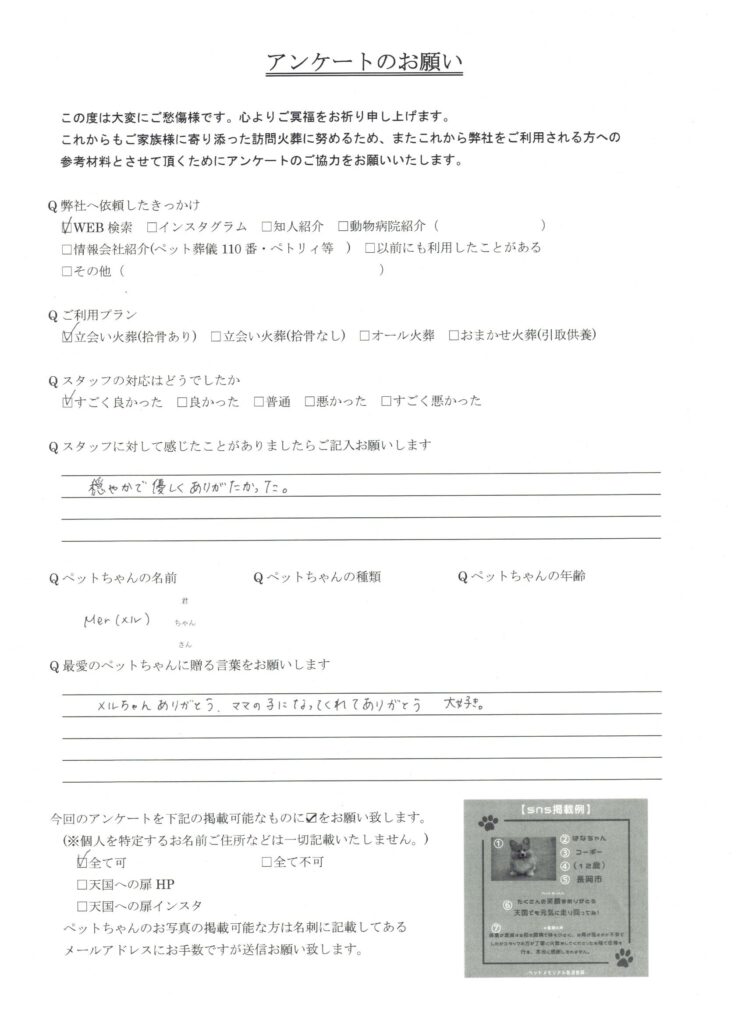 アンケートのお願い
この度は大変にご愁傷様です。心よりご冥福をお祈り申し上げます。
これからもご家族様に寄り添った訪問火葬に努めるため、またこれから弊社をご利用される方への
参考材料とさせて頂くためにアンケートのご協力をお願いいたします。
Q 弊社へ依頼したきっかけ
☑WEB 検索 □インスタグラム □知人紹介 □動物病院紹介（ ）
□情報会社紹介(ペット葬儀 110 番・ペトリィ等 ) □以前にも利用したことがある
□その他（ ）
Q ご利用プラン
☑立会い火葬(拾骨あり) □立会い火葬(拾骨なし) □オール火葬 □おまかせ火葬(引取供養)
Q スタッフの対応はどうでしたか
☑すごく良かった □良かった □普通 □悪かった □すごく悪かった
Q スタッフに対して感じたことがありましたらご記入お願いします
穏やかで優しくありがたかった。
Q ペットちゃんの名前 Q ペットちゃんの種類 Q ペットちゃんの年齢
君
Mer (メル) ちゃん
さん
Q 最愛のペットちゃんに贈る言葉をお願いします
メルちゃんありがとう、ママの子になってくれてありがとう 大好き。
今回のアンケートを下記の掲載可能なものに☑をお願い致します。
(※個人を特定するお名前ご住所などは一切記載いたしません。)
☑全て可 □全て不可
□天国への扉 HP
□天国への扉インスタ
ペットちゃんのお写真の掲載可能な方は名刺に記載してある
メールアドレスにお手数ですが送信お願い致します。
【sns掲載例】
① ② はなちゃん
③ コーギー
④ (12歳)
⑤ 長岡市
⑥ たくさんの笑顔をありがとう
天国でも元気に走り回ってね!
⑦